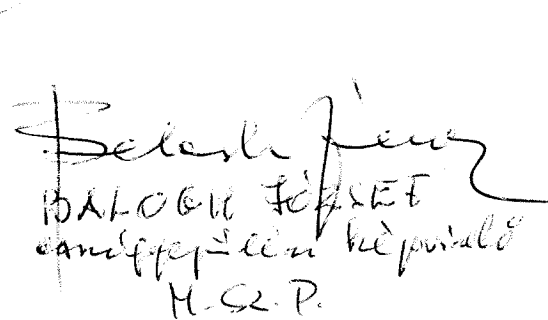 Balogh
BALOGH JÓZSEF
országgyűlési képviselő
M.SZ.P.